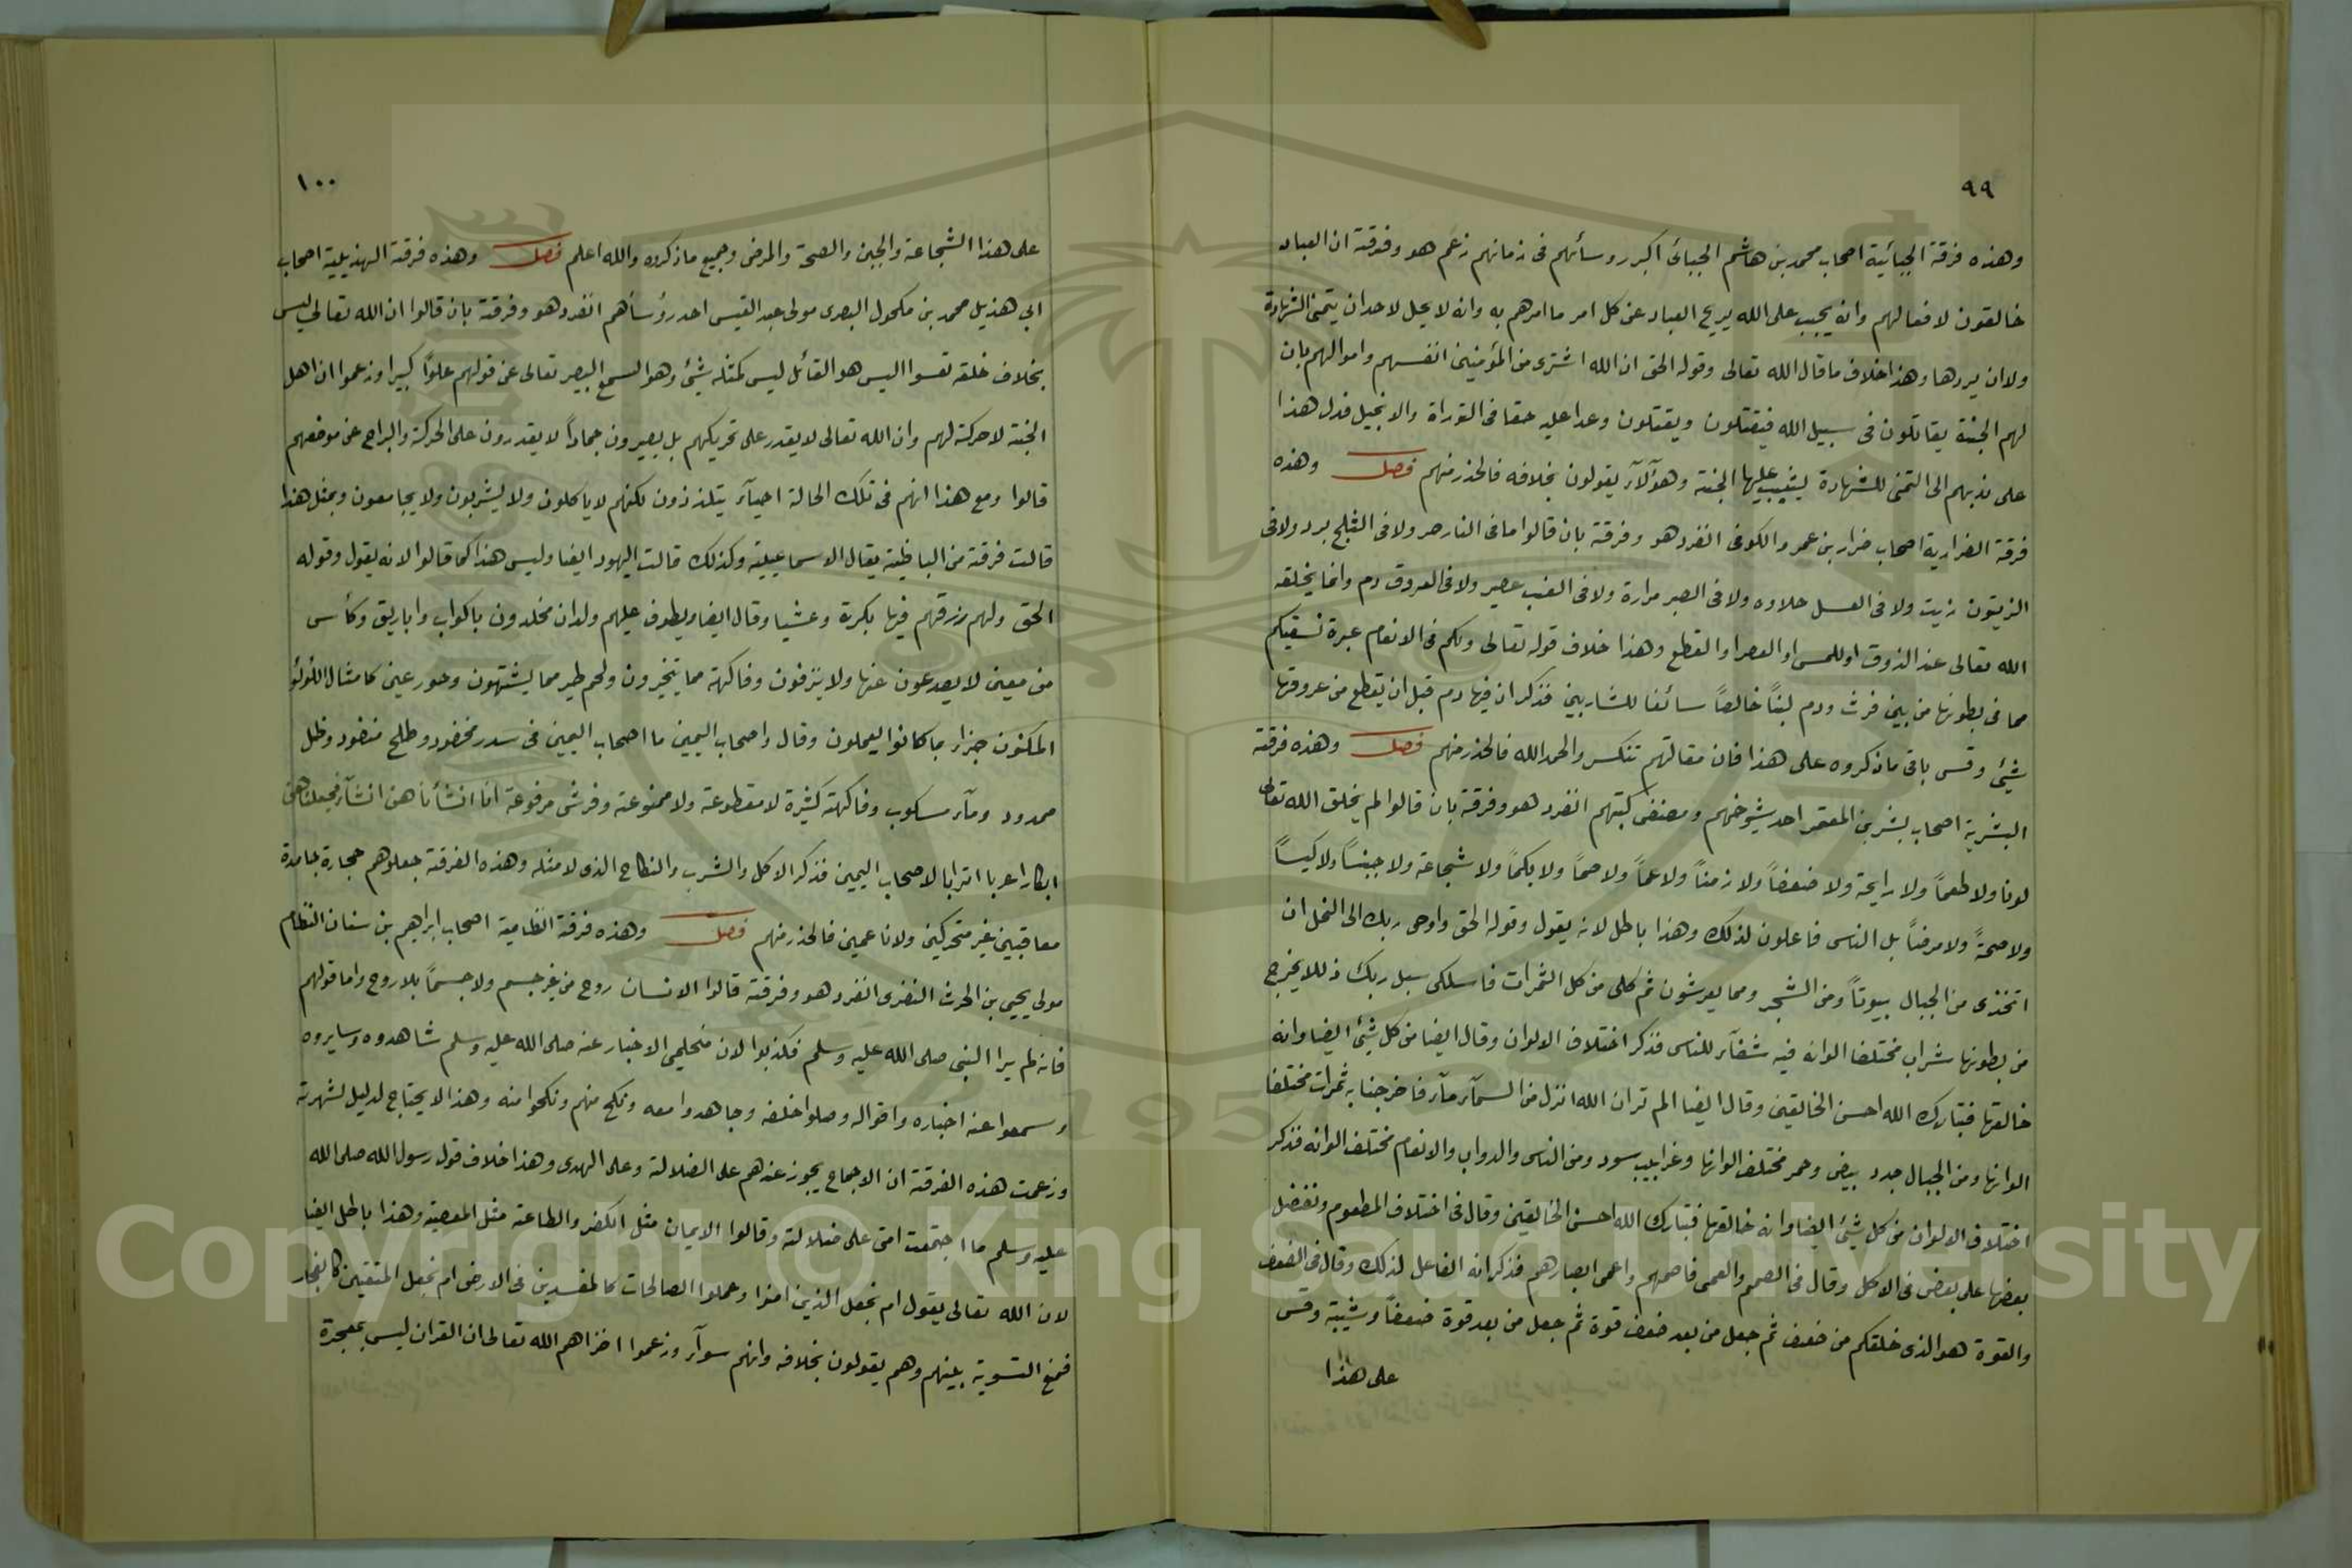 ٩٩
وهذه فرقة الجبائية اصحاب محمد بن هاشم الجبائى اكبر روسائهم فى زمانهم زعم هو وفرقته ان العباد
خالقون لافعالهم وانه يجب على الله يريح العباد عن كل امر ما امرهم به وانه لا يحل لاحد ان يتمنى الشهادة
ولا ان يردها وهذا خلاف ما قال الله تعالى وقوله الحق ان الله اشترى من المؤمنين انفسهم واموالهم بان
لهم الجنة يقاتلون فى سبيل الله فيقتلون ويقتلون وعدا عليه حقا فى التوراة والانجيل فدل هذا
على ندبهم الى التمنى للشهادة ليثيب عليها الجنة وهؤلآء يقولون بخلافه فالحذر منهم فصل وهذه
فرقة الضرارية اصحاب ضرار بن عمرو الكوفى انفرد هو وفرقته بان قالوا ما فى النار حر ولا فى الثلج برد ولا فى
الزيتون زيت ولا فى العسل حلاوه ولا فى الصبر مرارة ولا فى العنب عصير ولا فى العروق دم وانما يخلقه
الله تعالى عند الذوق او للمس او العصر او القطع وهذا خلاف قوله تعالى ولكم فى الانعام عبرة نسقيكم
مما فى بطونها من بين فرث ودم لبنًا خالصًا سائغا للشاربين فذكر ان فيها دم قبل ان يقطع من عروقها
شئ وقس باقى ما ذكروه على هذا فان مقالتهم تنكس والحمد الله فالحذر منهم فصل وهذه فرقة
البشرية اصحاب بشر بن المعتمر احد شيوخهم ومصنفى كتبهم انفرد هو وفرقته بان قالوا لم يخلق الله تعالى
لونا ولا طعمًا ولا رايحة ولا ضعفًا ولا زمنًا ولا عمًا ولا صمًا ولا بكمًا ولا شجاعة ولا جبنًا ولا كيسًا
ولا صحةً ولا مرضًا بل الناس فاعلون لذلك وهذا باطل لانه يقول وقوله الحق واوحى ربك الى النحل ان
اتخذى من الجبال بيوتًا ومن الشجر ومما يعرشون ثم كلى من كل الثمرات فاسلكى سبل ربك ذللا يخرج
من بطونها شراب مختلفا الوانه فيه شفآء للناس فذكر اختلاف الالوان وقال ايضا من كل شئ ايضا وانه
خالقها فتبارك الله احسن الخالقين وقال ايضا الم تر ان الله انزل من السمآء مآء فاخرجنا به ثمرات مختلفا
الوانها ومن الجبال جدد بيض وحمر مختلف الوانها وغرابيب سود ومن الناس والدواب والانعام مختلف الوانه فذكر
اختلاف الالوان من كل شئ ايضا وانه خالقها فتبارك الله احسن الخالقين وقال فى اختلاف المطعوم ونفضل
بعضها على بعض فى الاكل وقال فى الصم والعمى فاصمهم واعمى ابصارهم فذكر انه الفاعل لذلك وقال فى الضعف
والقوة هو الذى خلقكم من ضعف ثم جعل من بعد ضعف قوة ثم جعل من بعد قوة ضعفًا وشيبة وقس
على هذا
١٠٠
على هذا الشجاعة والجبن والصحة والمرض وجميع ما ذكروه والله اعلم فصل وهذه فرقة الهذيلية اصحاب
ابي هذيل محمد بن مكحول البصرى مولى عبد القيس احد رؤسآهم انفرد هو وفرقته بان قالوا ان الله تعالى ليس
بخلاف خلقه تعسوا اليس هو القائل ليس كمثله شئ وهو السمع البصير تعالى عن قولهم علوًا كبيرا وزعموا ان اهل
الجنة لا حركة لهم وان الله تعالى لا يقدر على تحريكهم بل يصيرون جمادًا لا يقدرون على الحركة والبراح عن موضعهم
قالوا ومع هذا انهم فى تلك الحالة احيآء يتلذذون لكنهم لا ياكلون ولا يشربون ولا يجامعون وبمثل هذا
قالت فرقة من الباطنية يقال الاسماعيلية وكذلك قالت اليهود ايضا وليس هذا كما قالوا لانه يقول وقوله
الحق ولهم رزقهم فيها بكرة وعشيا وقال ايضا ويطوف عليهم ولدان مخلدون باكواب واباريق وكأس
من معين لا يصدعون عنها ولا ينزفون وفاكهة مما يتخيرون ولحم طير مما يشتهون وحور عين كامثال اللؤلؤ
المكنون جزاء بما كانوا يعملون وقال واصحاب اليمين ما اصحاب اليمين فى سدر مخضود وطلح منضود وظل
ممدود ومآء مسكوب وفاكهة كثيرة لا مقطوعة ولا ممنوعة وفرش مرفوعة انا انشأناهن انشآء فجعلناهن
ابكارا عربا اترابا لاصحاب اليمين فذكر الاكل والشرب والنكاح الذى لا مثله وهذه الفرقة جعلوهم حجارة جامدة
معاقبين غير متحركين ولا ناعمين فالحذر منهم فصل وهذه فرقة النظامية اصحاب ابراهيم بن سنان النظام
مولى يحيى بن الحرث النضرى انفرد هو وفرقته قالوا الانسان روح من غير جسم ولا جسمًا بلا روح واما قولهم
فانه لم يرا النبى صلى الله عليه وسلم فكذبوا لان متحلمى الاخبار عنه صلى الله عليه وسلم شاهدوه وسايروه
وسمعوا عنه اخباره واقواله وصلوا خلفه وجاهدوا معه ونكح منهم ونكحوا منه وهذا لا يحتاج لدليل لشهرته
وزعمت هذه الفرقة ان الاجماع يجوز عندهم على الضلالة وعلى الهدى وهذا خلاف قول رسول الله صلى الله
عليه وسلم ما اجتمعت امتى على ضلالة وقالوا الايمان مثل الكفر والطاعة مثل المعصية وهذا باطل ايضا
لان الله تعالى يقول ام نجعل الذين امنوا وعملوا الصالحات كالمفسدين فى الارض ام نجعل المتقين كالفجار
فمنع التسوية بينهم وهم يقولون بخلافه وانهم سوآء وزعموا اخزاهم الله تعالى ان القران ليس بمعجزة
Copyright © King Saud University
1957